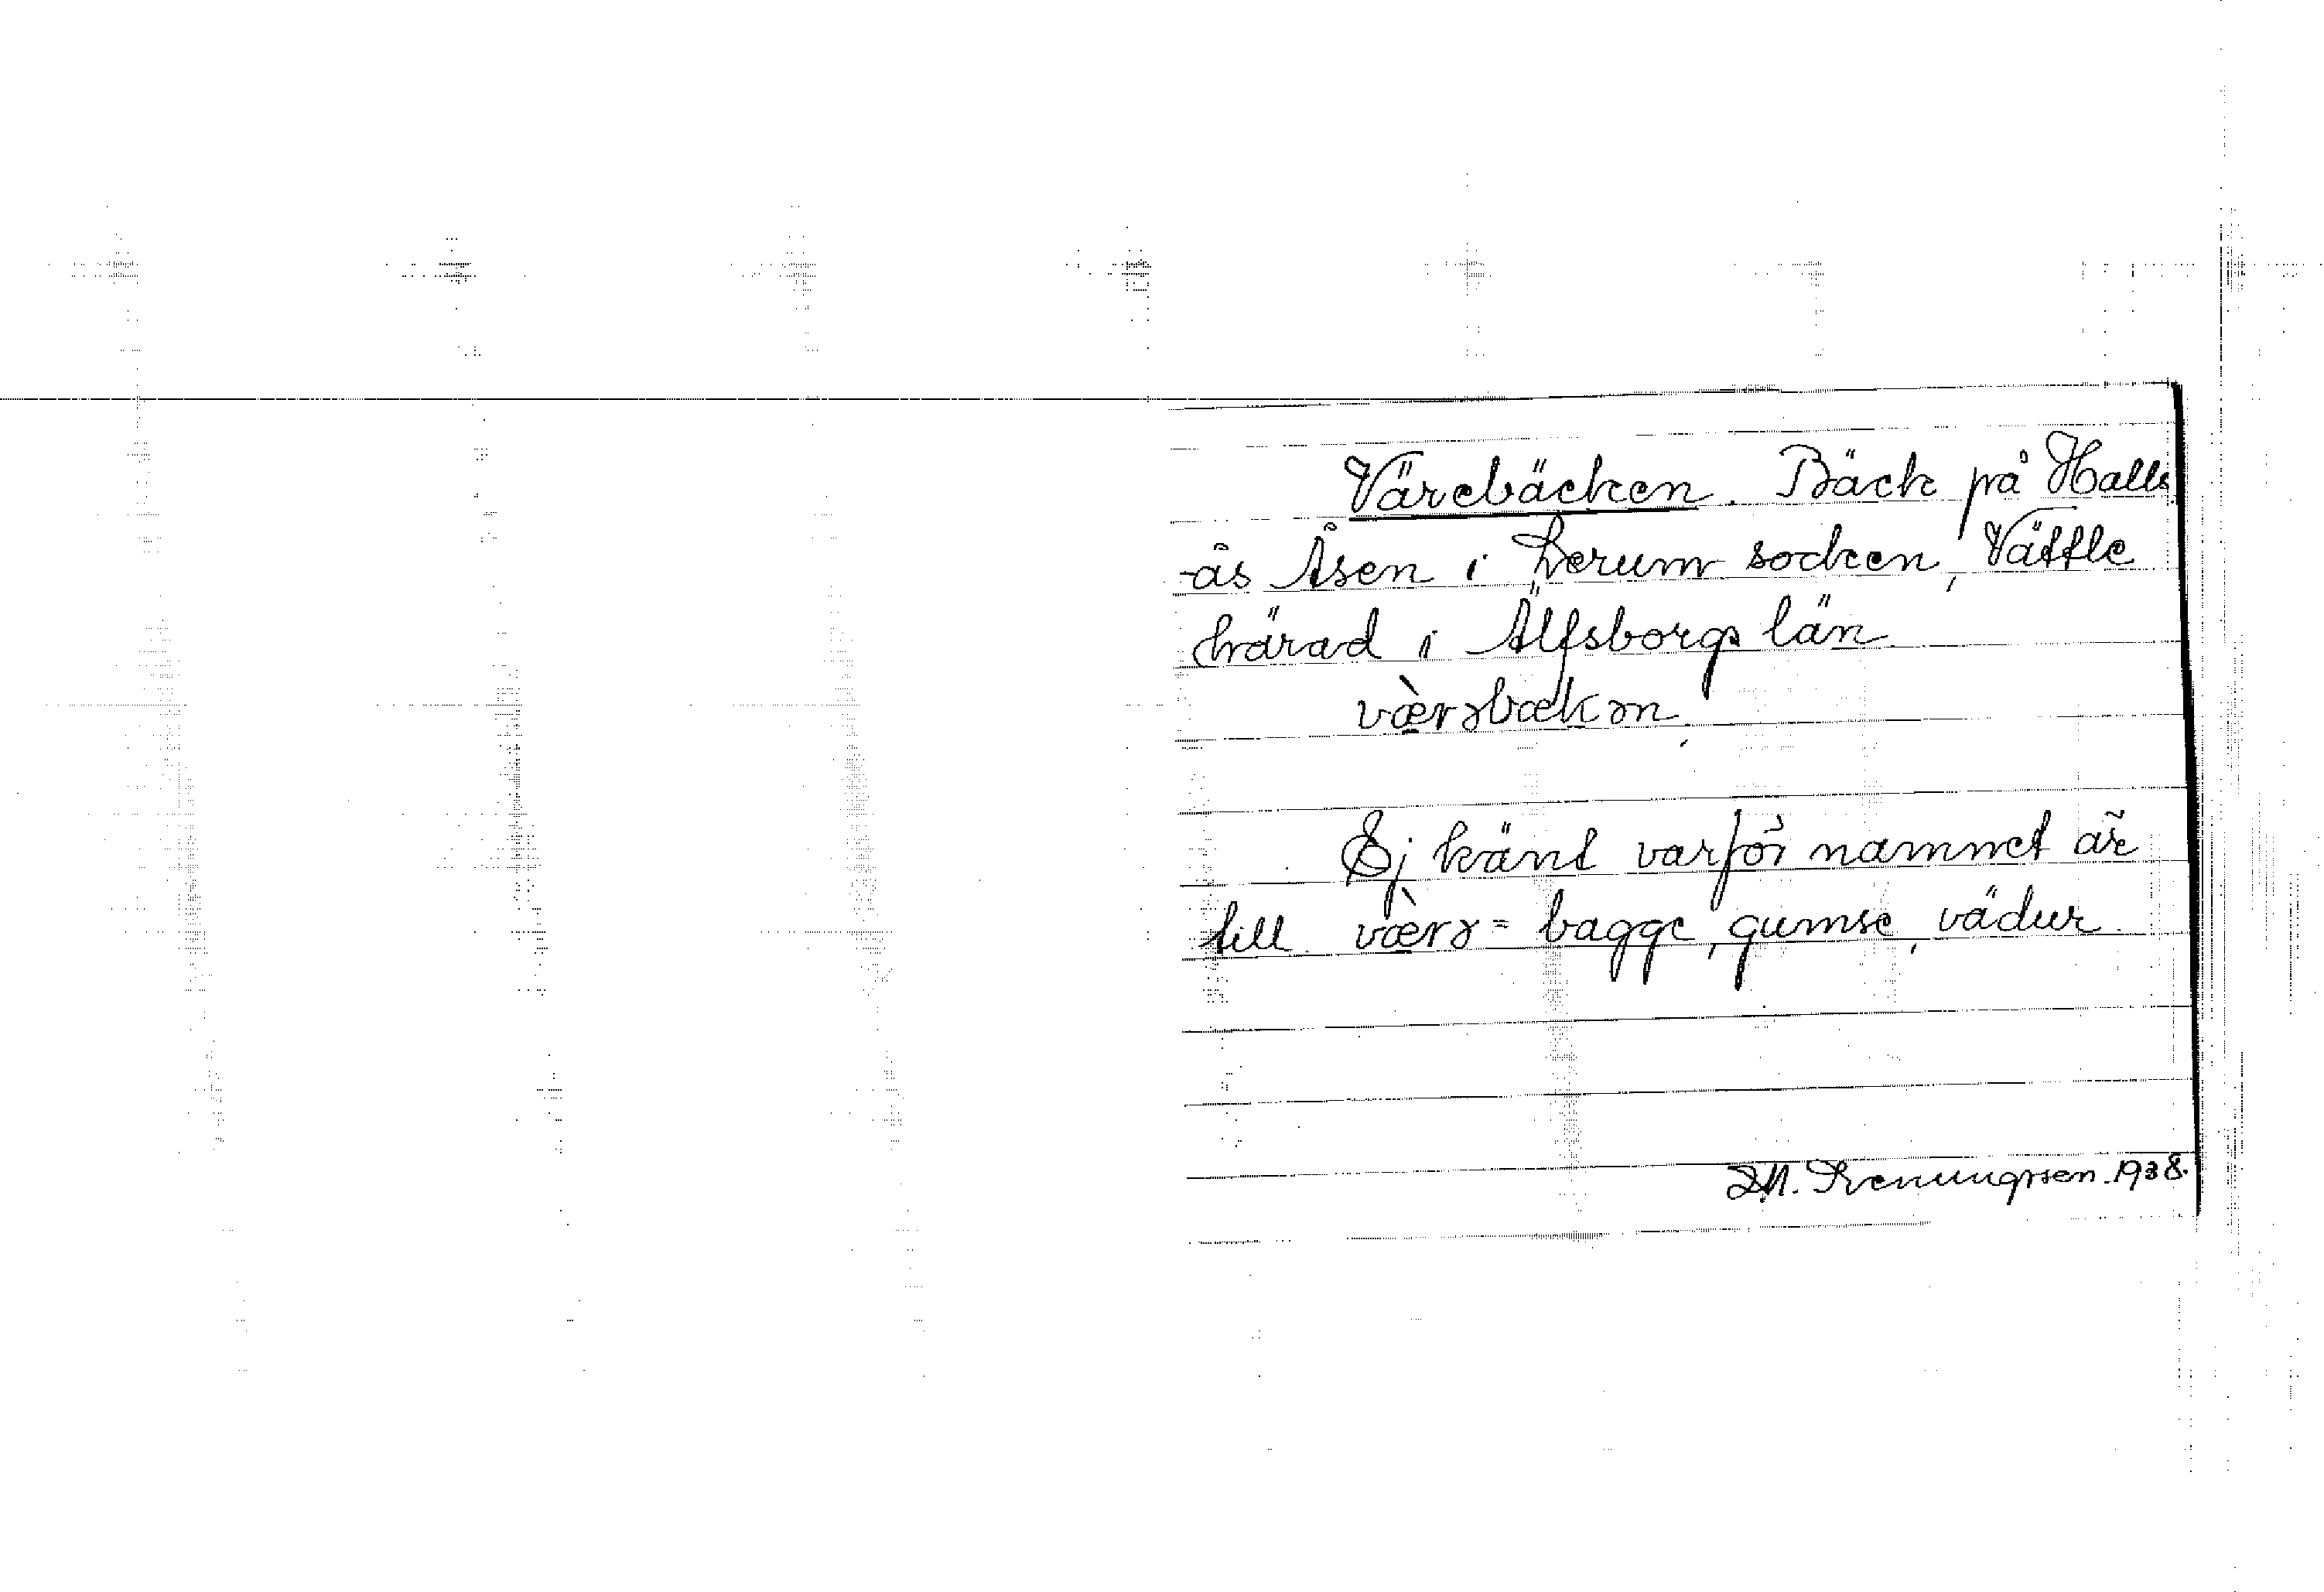 Värebäcken. Bäck på Halls
-ås Åsen i Lerum socken, Vättle
härad i Älfsborgs län
værəbækən
Ej känt varför namnet är
till værə = bagge, gumse, vädur.
1938.